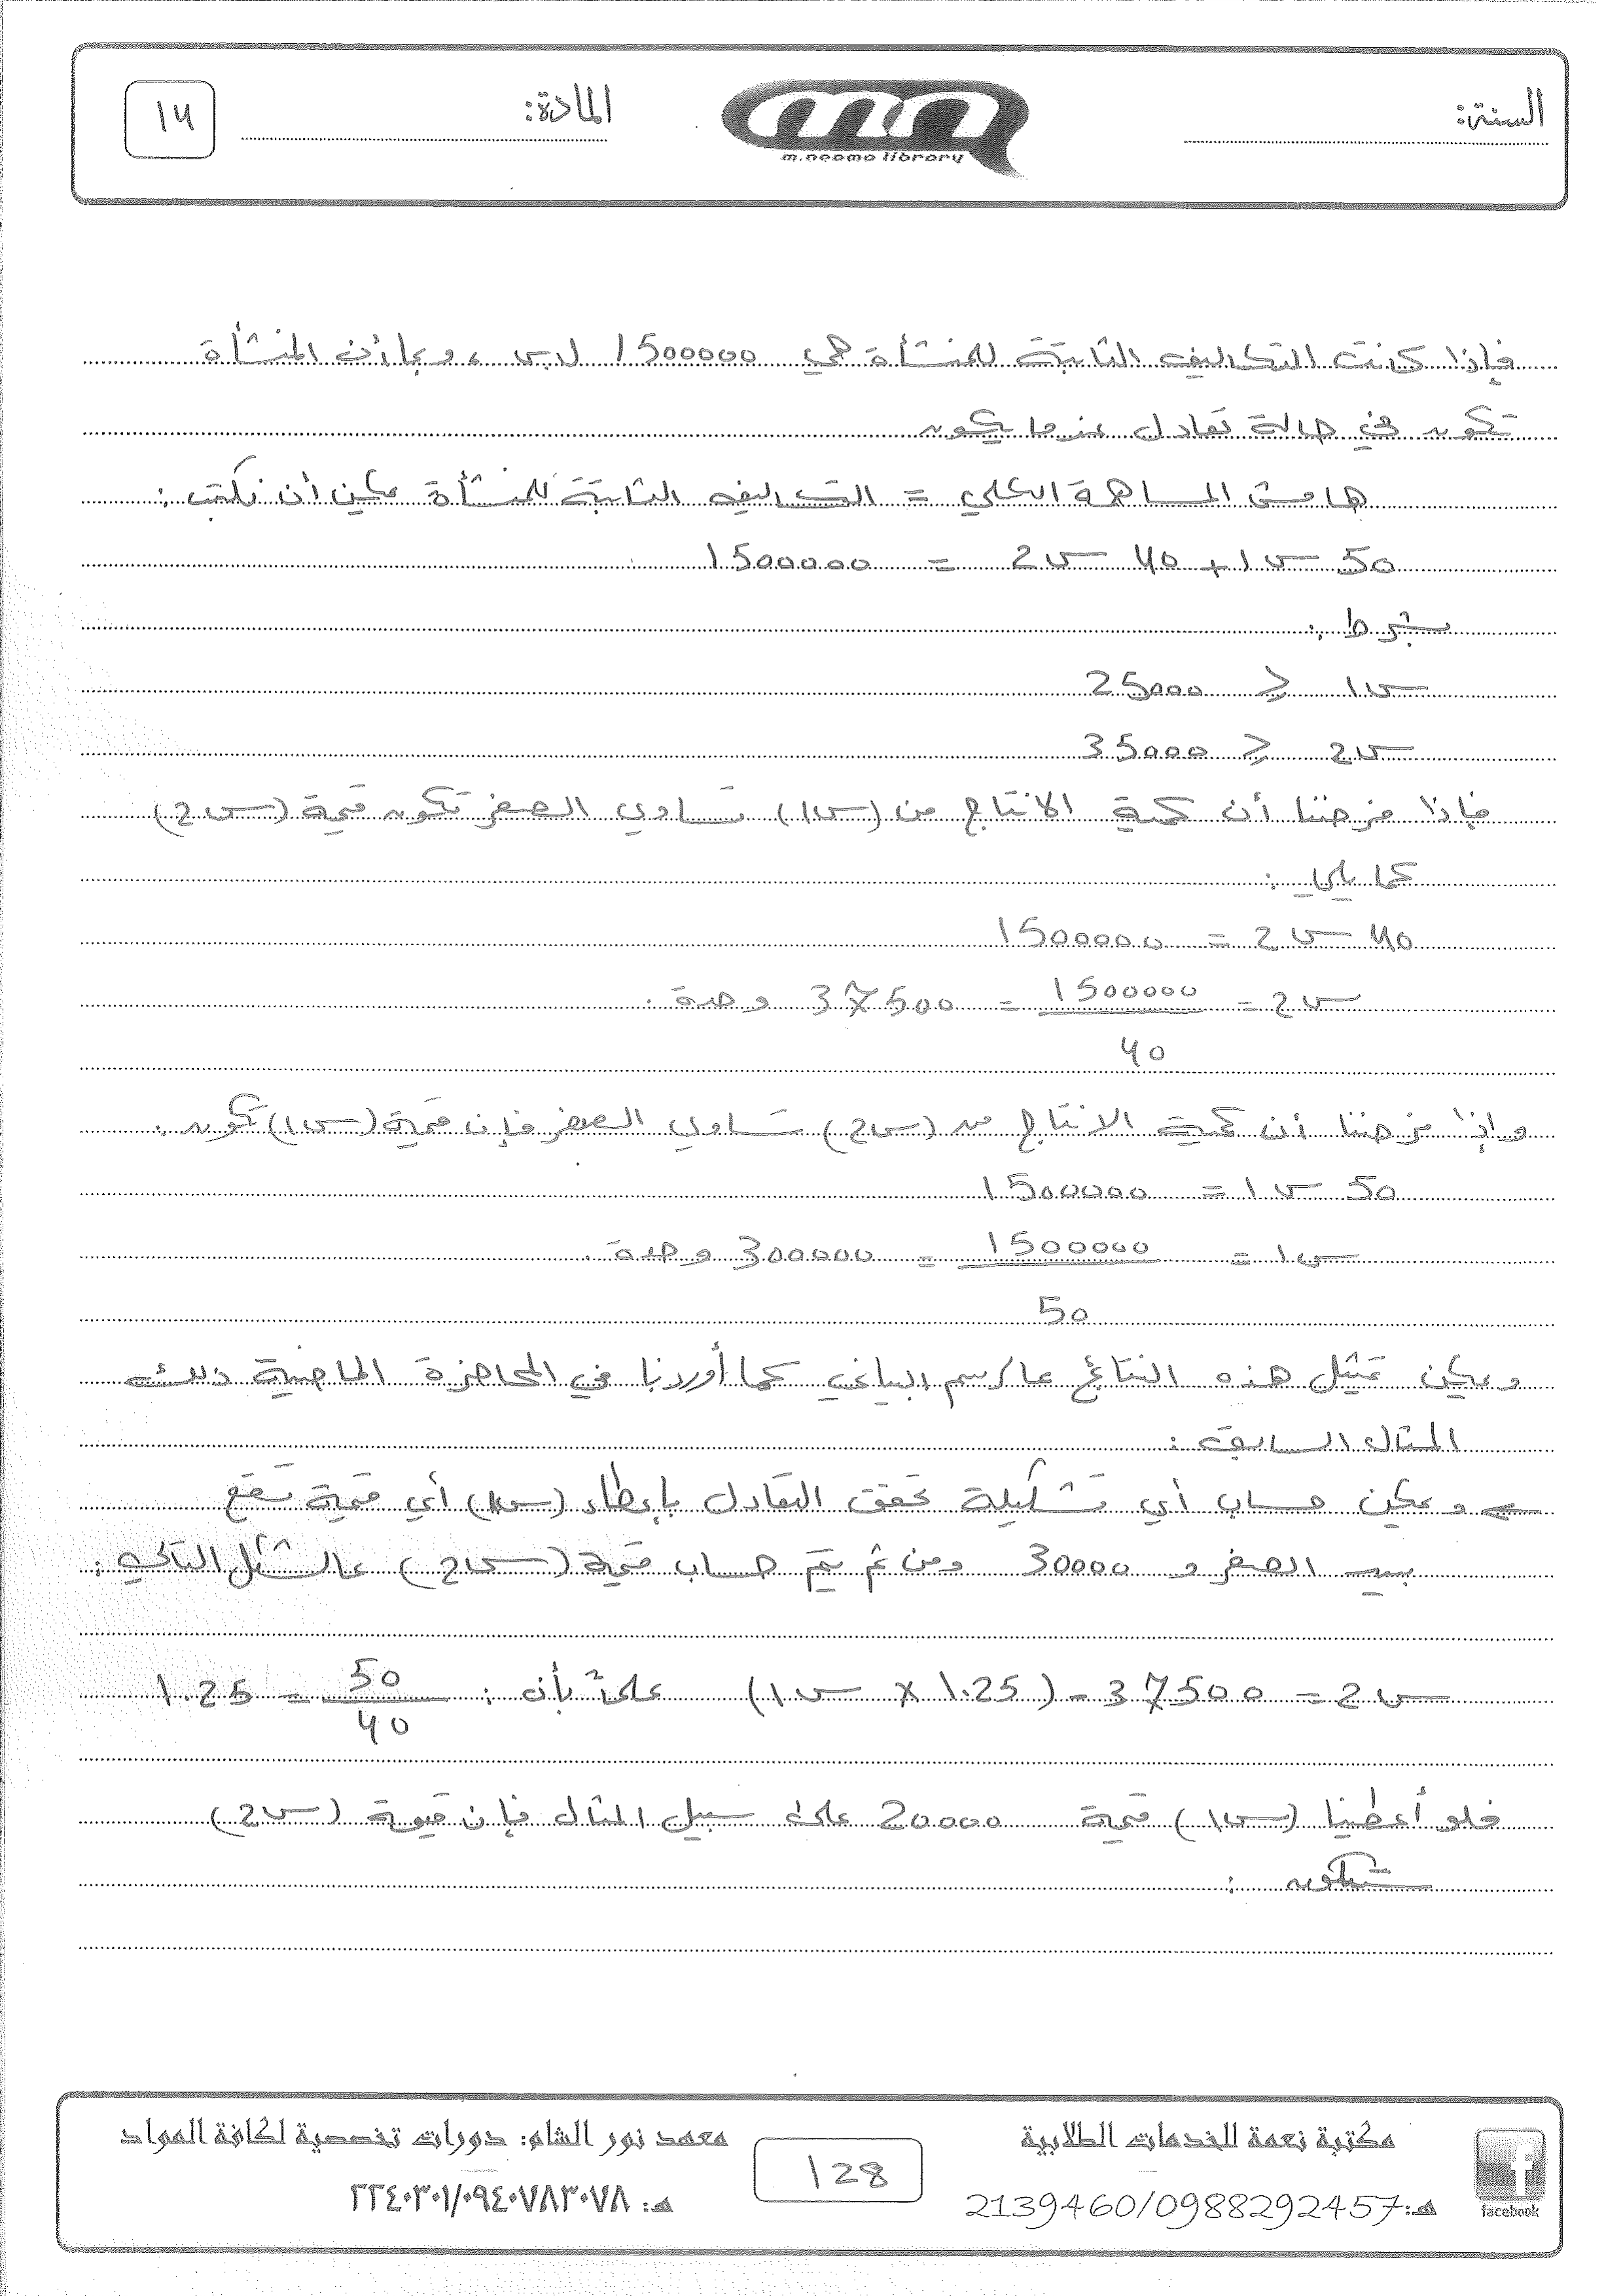 السنة:
m.neama library
المادة:
14
فإذا كانت التكاليف الثابتة للمنشأة هي 1500000 ل.س ، وبما أن المنشأة
تكون في حالة تعادل عندما يكون
هامش المساهمة الكلي = التكاليف الثابتة للمنشأة يمكن أن نكتب :
50 س1 + 40 س2 = 1500000
بشرط :
س1 ≥ 25000
س2 ≥ 35000
فإذا فرضنا أن كمية الانتاج من (س1) تساوي الصفر تكون قيمة (س2)
كما يلي :
40 س2 = 1500000
س2 = 1500000 = 37500 وحدة .
40
وإذا فرضنا أن كمية الانتاج من (س2) تساوي الصفر فإن قيمة (س1) تكون :
50 س1 = 1500000
س1 = 1500000 = 300000 وحدة .
50
ويمكن تمثيل هذه النتائج عالرسم البياني كما أوردنا في المحاضرة الماضية ذلك
المثال السابق :
← ويمكن حساب أي تشكيلة تحقق التعادل بإعطاء (س1) أي قيمة تقع
بين الصفر و 30000 ومن ثم يتم حساب قيمة (س2) عالشكل التالي :
س2 = 37500 - (1.25 × س1) علماً بأن : 50 = 1.25
40
فلو أعطينا (س1) قيمة 20000 على سبيل المثال فإن قيمة (س2)
ستكون :
facebook
مكتبة نعمة للخدمات الطلابية
هـ: 2139460/0988292457
128
معهد نور الشام: دورات تخصصية لكافة المواد
هـ: ٢٢٤٠٣٠١/٠٩٤٠٧٨٣٠٧٨